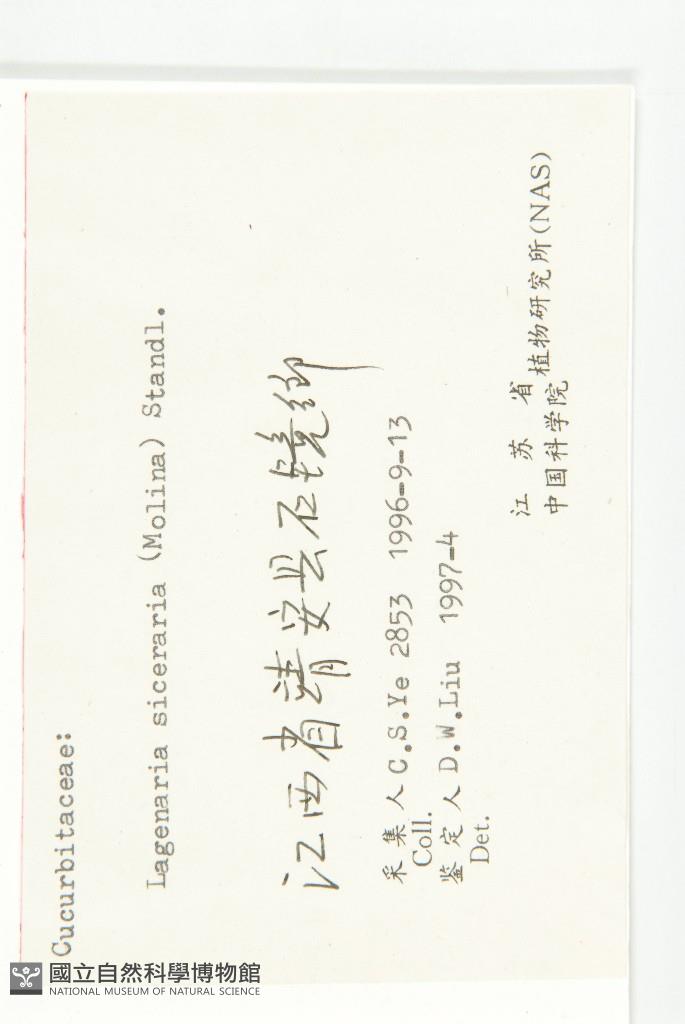 Cucurbitaceae:
Lagenaria siceraria (Molina) Standl.
江西省靖安县石镜鄉
采集人 C.S.Ye 2853 1996-9-13
Coll.
鉴定人 D.W.Liu 1997-4
Det.
江苏省
中国科学院 植物研究所(NAS)
國立自然科學博物館
NATIONAL MUSEUM OF NATURAL SCIENCE